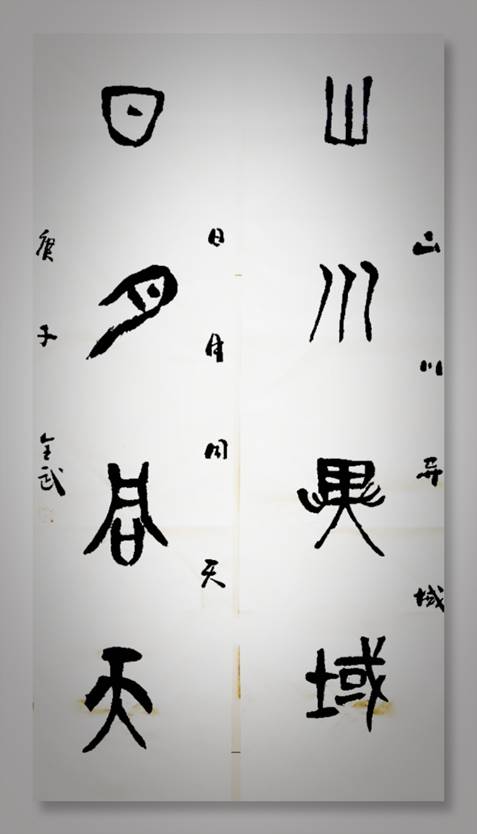 山川异域
山川異域
日月同天
日月同天
庚子全武